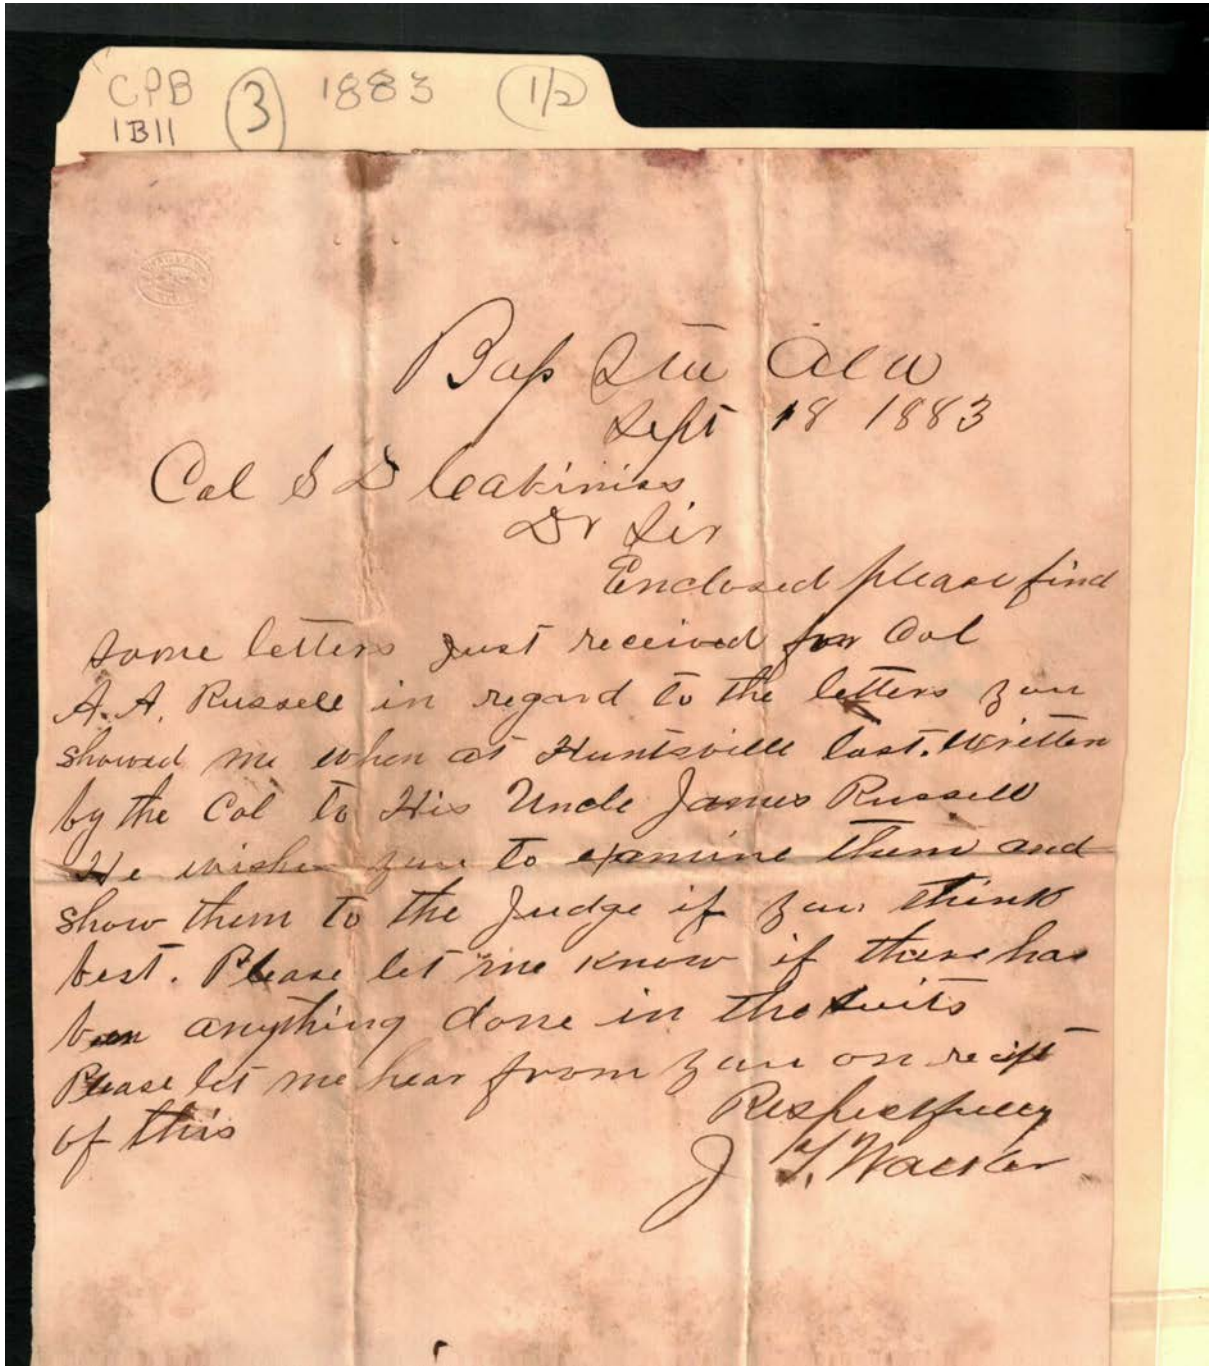 CPB 3 1883 1/2
1B11
Bass Sta Ala
Sept 18 1883
Col S D Cabiniss
Dr Sir
Enclosed please find
some letters just received from Col
A. A. Russell in regard to the letters you
showed me when at Huntsville last. Written
by the Col to His Uncle James Russell
He wishes you to examine them and
show them to the Judge if you think
best. Please let me know if there has
been anything done in the suits
Please let me hear from you on recipt
of this
Respectfully
J